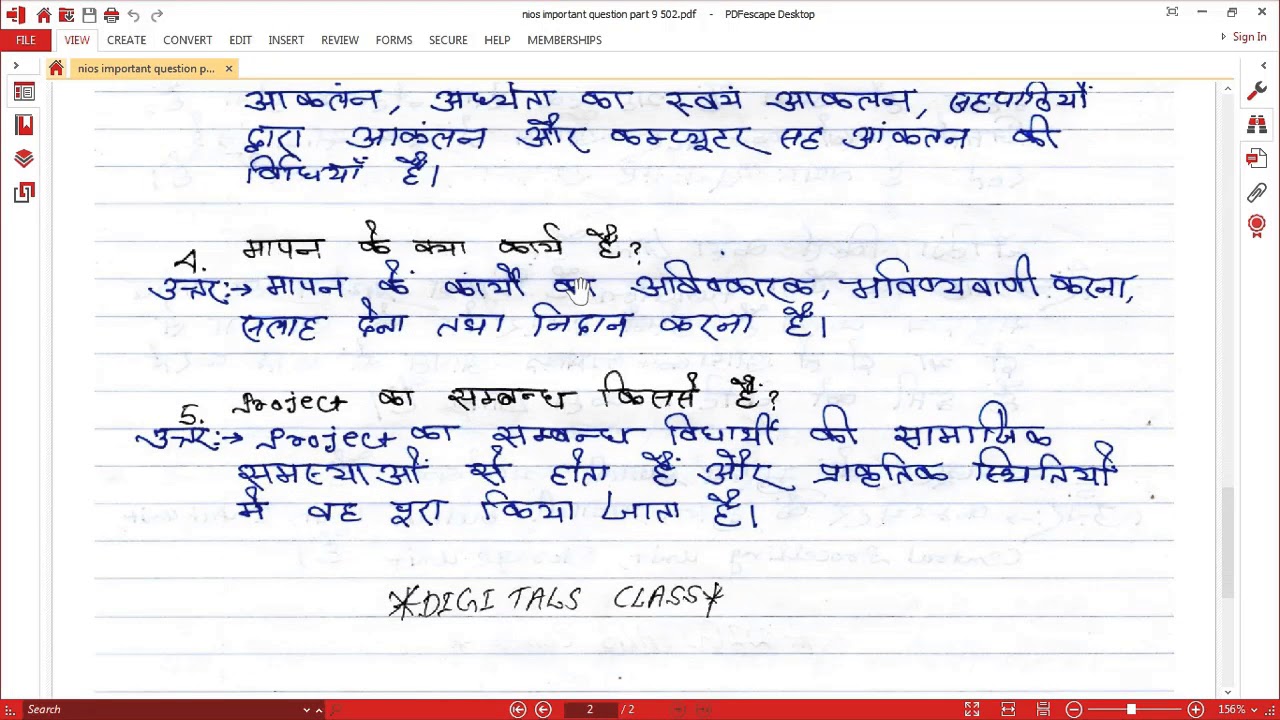 nios important question part 9 502.pdf - PDFescape Desktop
FILE VIEW CREATE CONVERT EDIT INSERT REVIEW FORMS SECURE HELP MEMBERSHIPS Sign In
nios important question p... ×
आकलंन, अध्येता का स्वयं आकलन, सहपाठियों
द्वारा आकंलन और कम्प्यूटर सह आंकलन की
विधियाँ हैं।
4. मापन के क्या कार्य हैं?
उत्तरः→ मापन के कार्यो का अविष्कारक, भविष्यवाणी करना,
सलाह देना तथा निदान करना हैं।
5. Project का सम्बन्ध किससे हैं?
उत्तरः→ Project का सम्बन्ध विधार्थी की सामाजिक
समस्याओं से होता हैं और प्राकृतिक स्थितियों
मे वह पूरा किया जाता है।
*DIGITALS CLASS*
Search 2 / 2 156%